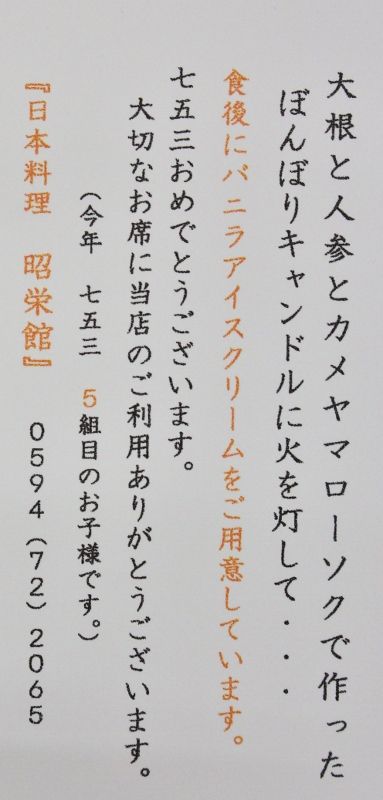 大根と人参とカメヤマローソクで作った
ぼんぼりキャンドルに火を灯して・・・
食後にバニラアイスクリームをご用意しています。
七五三おめでとうございます。
大切なお席に当店のご利用ありがとうございます。
（今年　七五三　５組目のお子様です。）
『日本料理　昭栄館』　０５９４（７２）２０６５